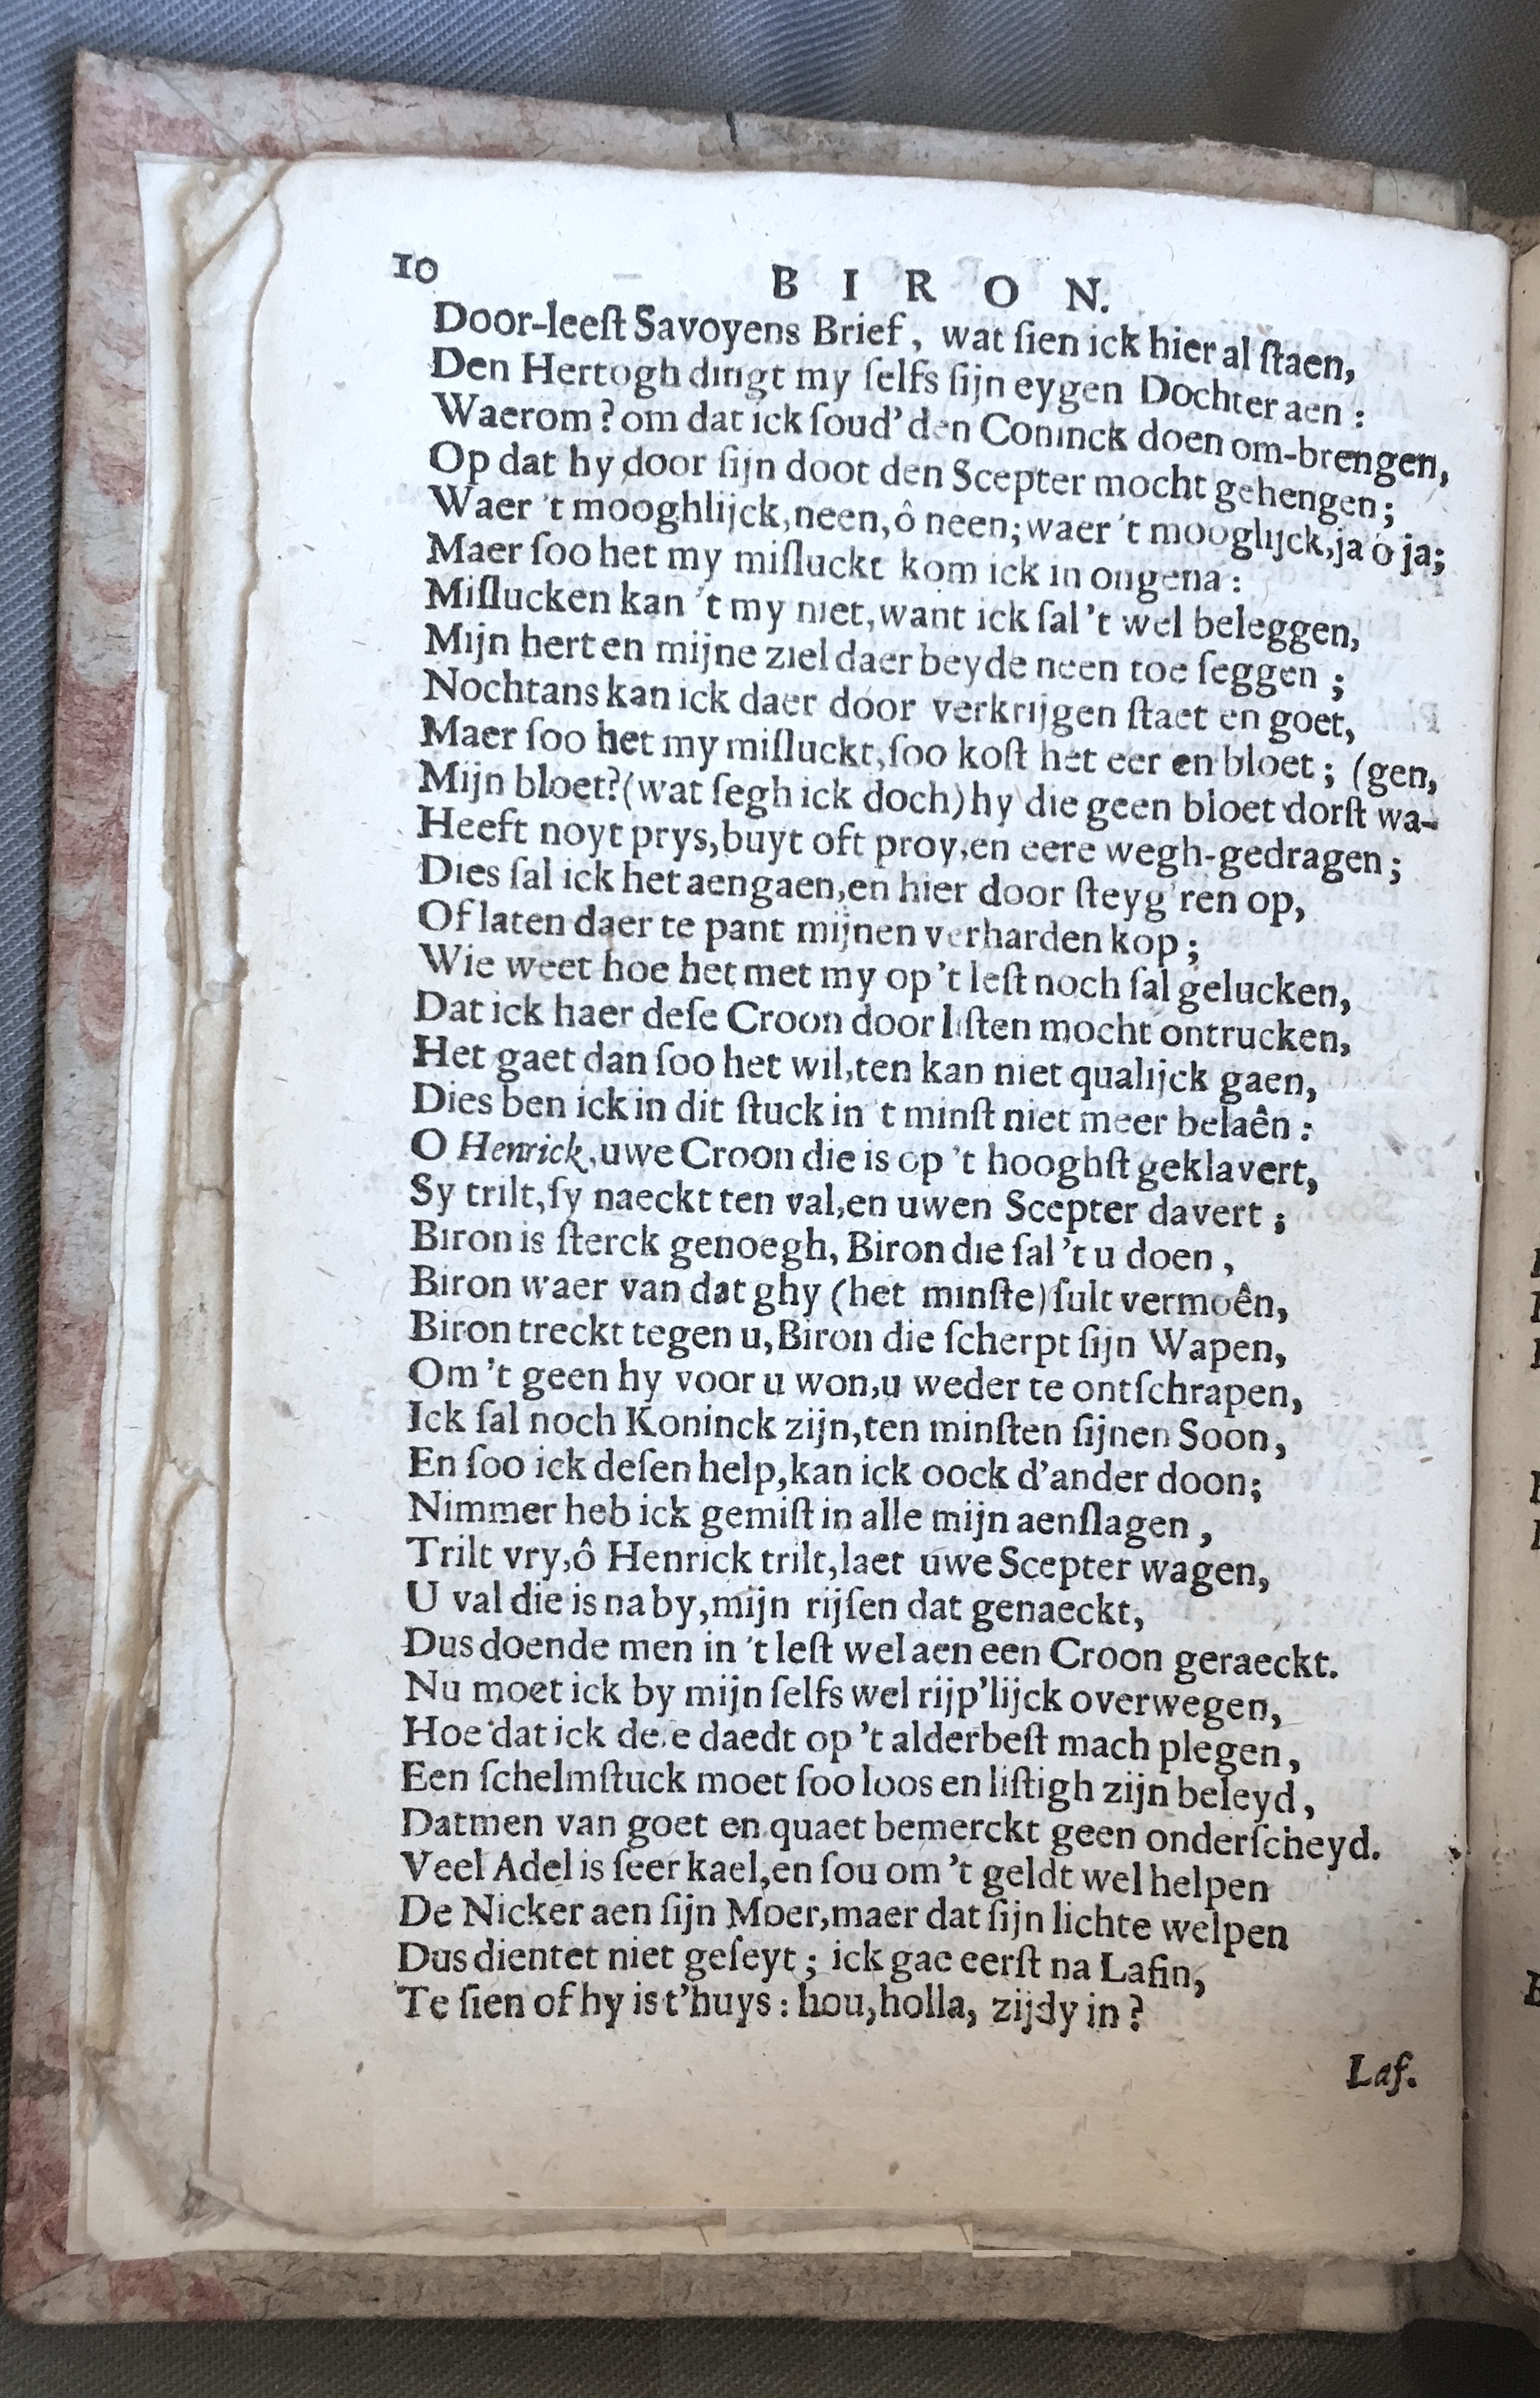 10 BIRON.
Door-leeſt Savoyens Brief, wat ſien ick hier al ſtaen,
Den Hertogh dringt my ſelfs ſijn eygen Dochter aen:
Waerom? om dat ick ſoud' den Coninck doen om-brengen,
Op dat hy door ſijn doot den Scepter mocht gehengen;
Waer 't mooghlijck, neen, ô neen; waer 't mooglijck, ja ô ja;
Maer ſoo het my miſluckt kom ick in ongena:
Miſlucken kan 't my niet, want ick ſal 't wel beleggen,
Mijn hert en mijne ziel daer beyde neen toe ſeggen;
Nochtans kan ick daer door verkrijgen ſtaet en goet,
Maer ſoo het my miſluckt, ſoo koſt het eer en bloet; (gen,
Mijn bloet? (wat ſegh ick doch) hy die geen bloet dorſt wa-
Heeft noyt prys, buyt oft proy, en eere wegh-gedragen;
Dies ſal ick het aengaen, en hier door ſteyg'ren op,
Of laten daer te pant mijnen verharden kop;
Wie weet hoe het met my op 't leſt noch ſal gelucken,
Dat ick haer deſe Croon door liſten mocht ontrucken,
Het gaet dan ſoo het wil, ten kan niet qualijck gaen,
Dies ben ick in dit ſtuck in 't minſt niet meer belaên:
O Henrick, uwe Croon die is op 't hooghſt geklavert,
Sy trilt, ſy naeckt ten val, en uwen Scepter davert;
Biron is ſterck genoegh, Biron die ſal 't u doen,
Biron waer van dat ghy (het minſte) ſult vermoên,
Biron treckt tegen u, Biron die ſcherpt ſijn Wapen,
Om 't geen hy voor u won, u weder te ontſchrapen,
Ick ſal noch Koninck zijn, ten minſten ſijnen Soon,
En ſoo ick deſen help, kan ick oock d'ander doon;
Nimmer heb ick gemiſt in alle mijn aenſlagen,
Trilt vry, ô Henrick trilt, laet uwe Scepter wagen,
U val die is na by, mijn rijſen dat genaeckt,
Dus doende men in 't leſt wel aen een Croon geraeckt.
Nu moet ick by mijn ſelfs wel rijp'lijck overwegen,
Hoe dat ick de.e daedt op 't alderbeſt mach plegen,
Een ſchelmſtuck moet ſoo loos en liſtigh zijn beleyd,
Datmen van goet en quaet bemerckt geen onderſcheyd.
Veel Adel is ſeer kael, en ſou om 't geldt wel helpen
De Nicker aen ſijn Moer, maer dat ſijn lichte welpen
Dus dientet niet geſeyt; ick gae eerſt na Lafin,
Te ſien of hy is t'huys: hou, holla, zijdy in?
Laf.